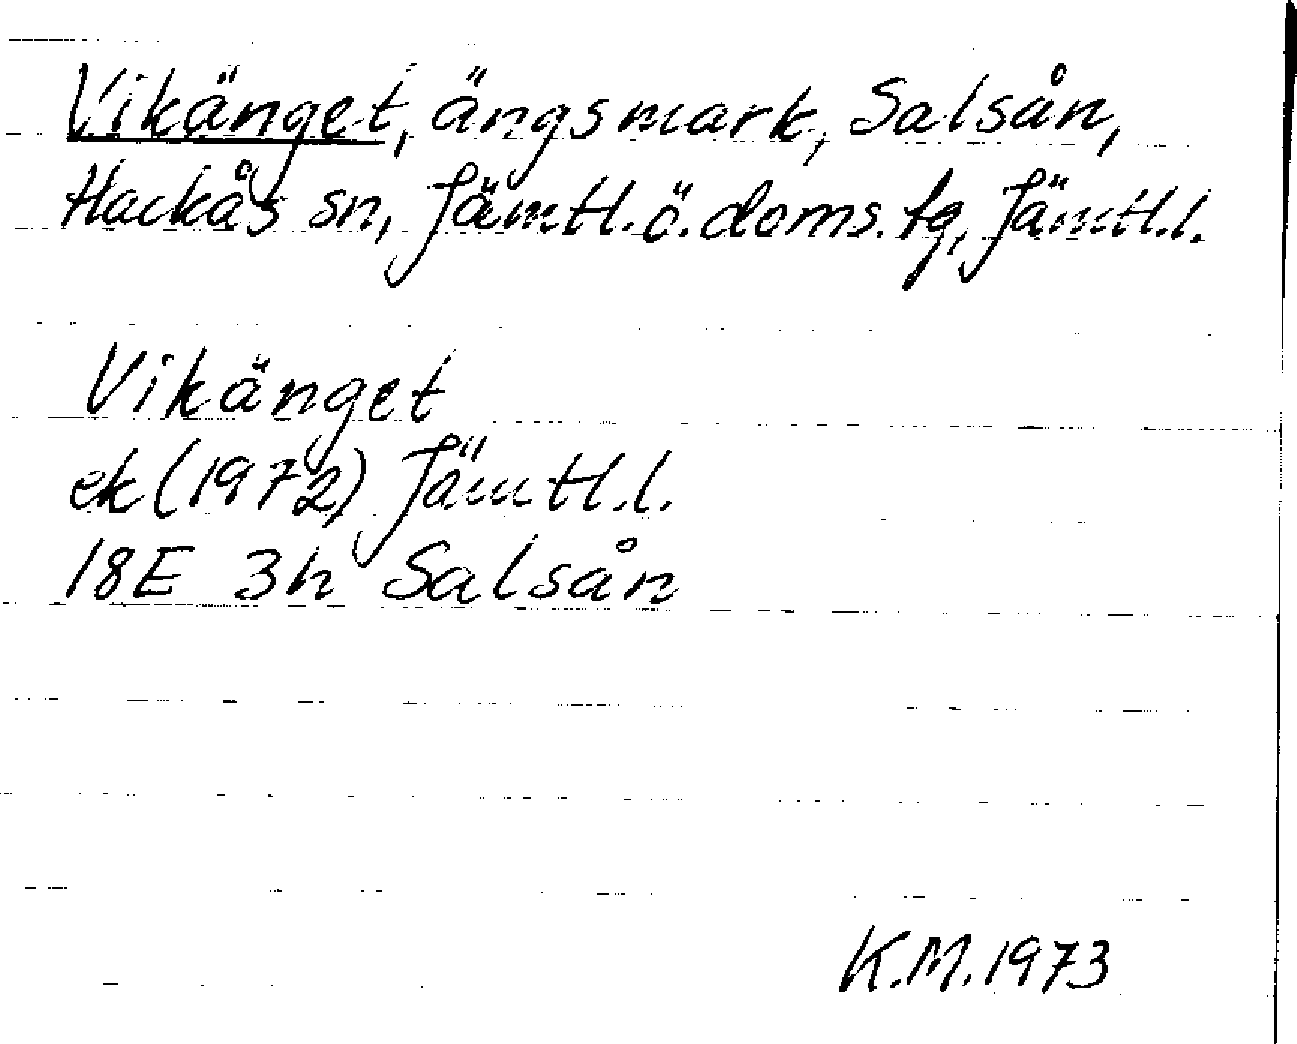 Vikänget, ängsmark, Salsån,
Hackås sn, Jämtl. ö. doms. tg, Jämtl.l.
Vikänget
ek (1972) Jämtl.l.
18E 3h Salsån
K.M. 1973